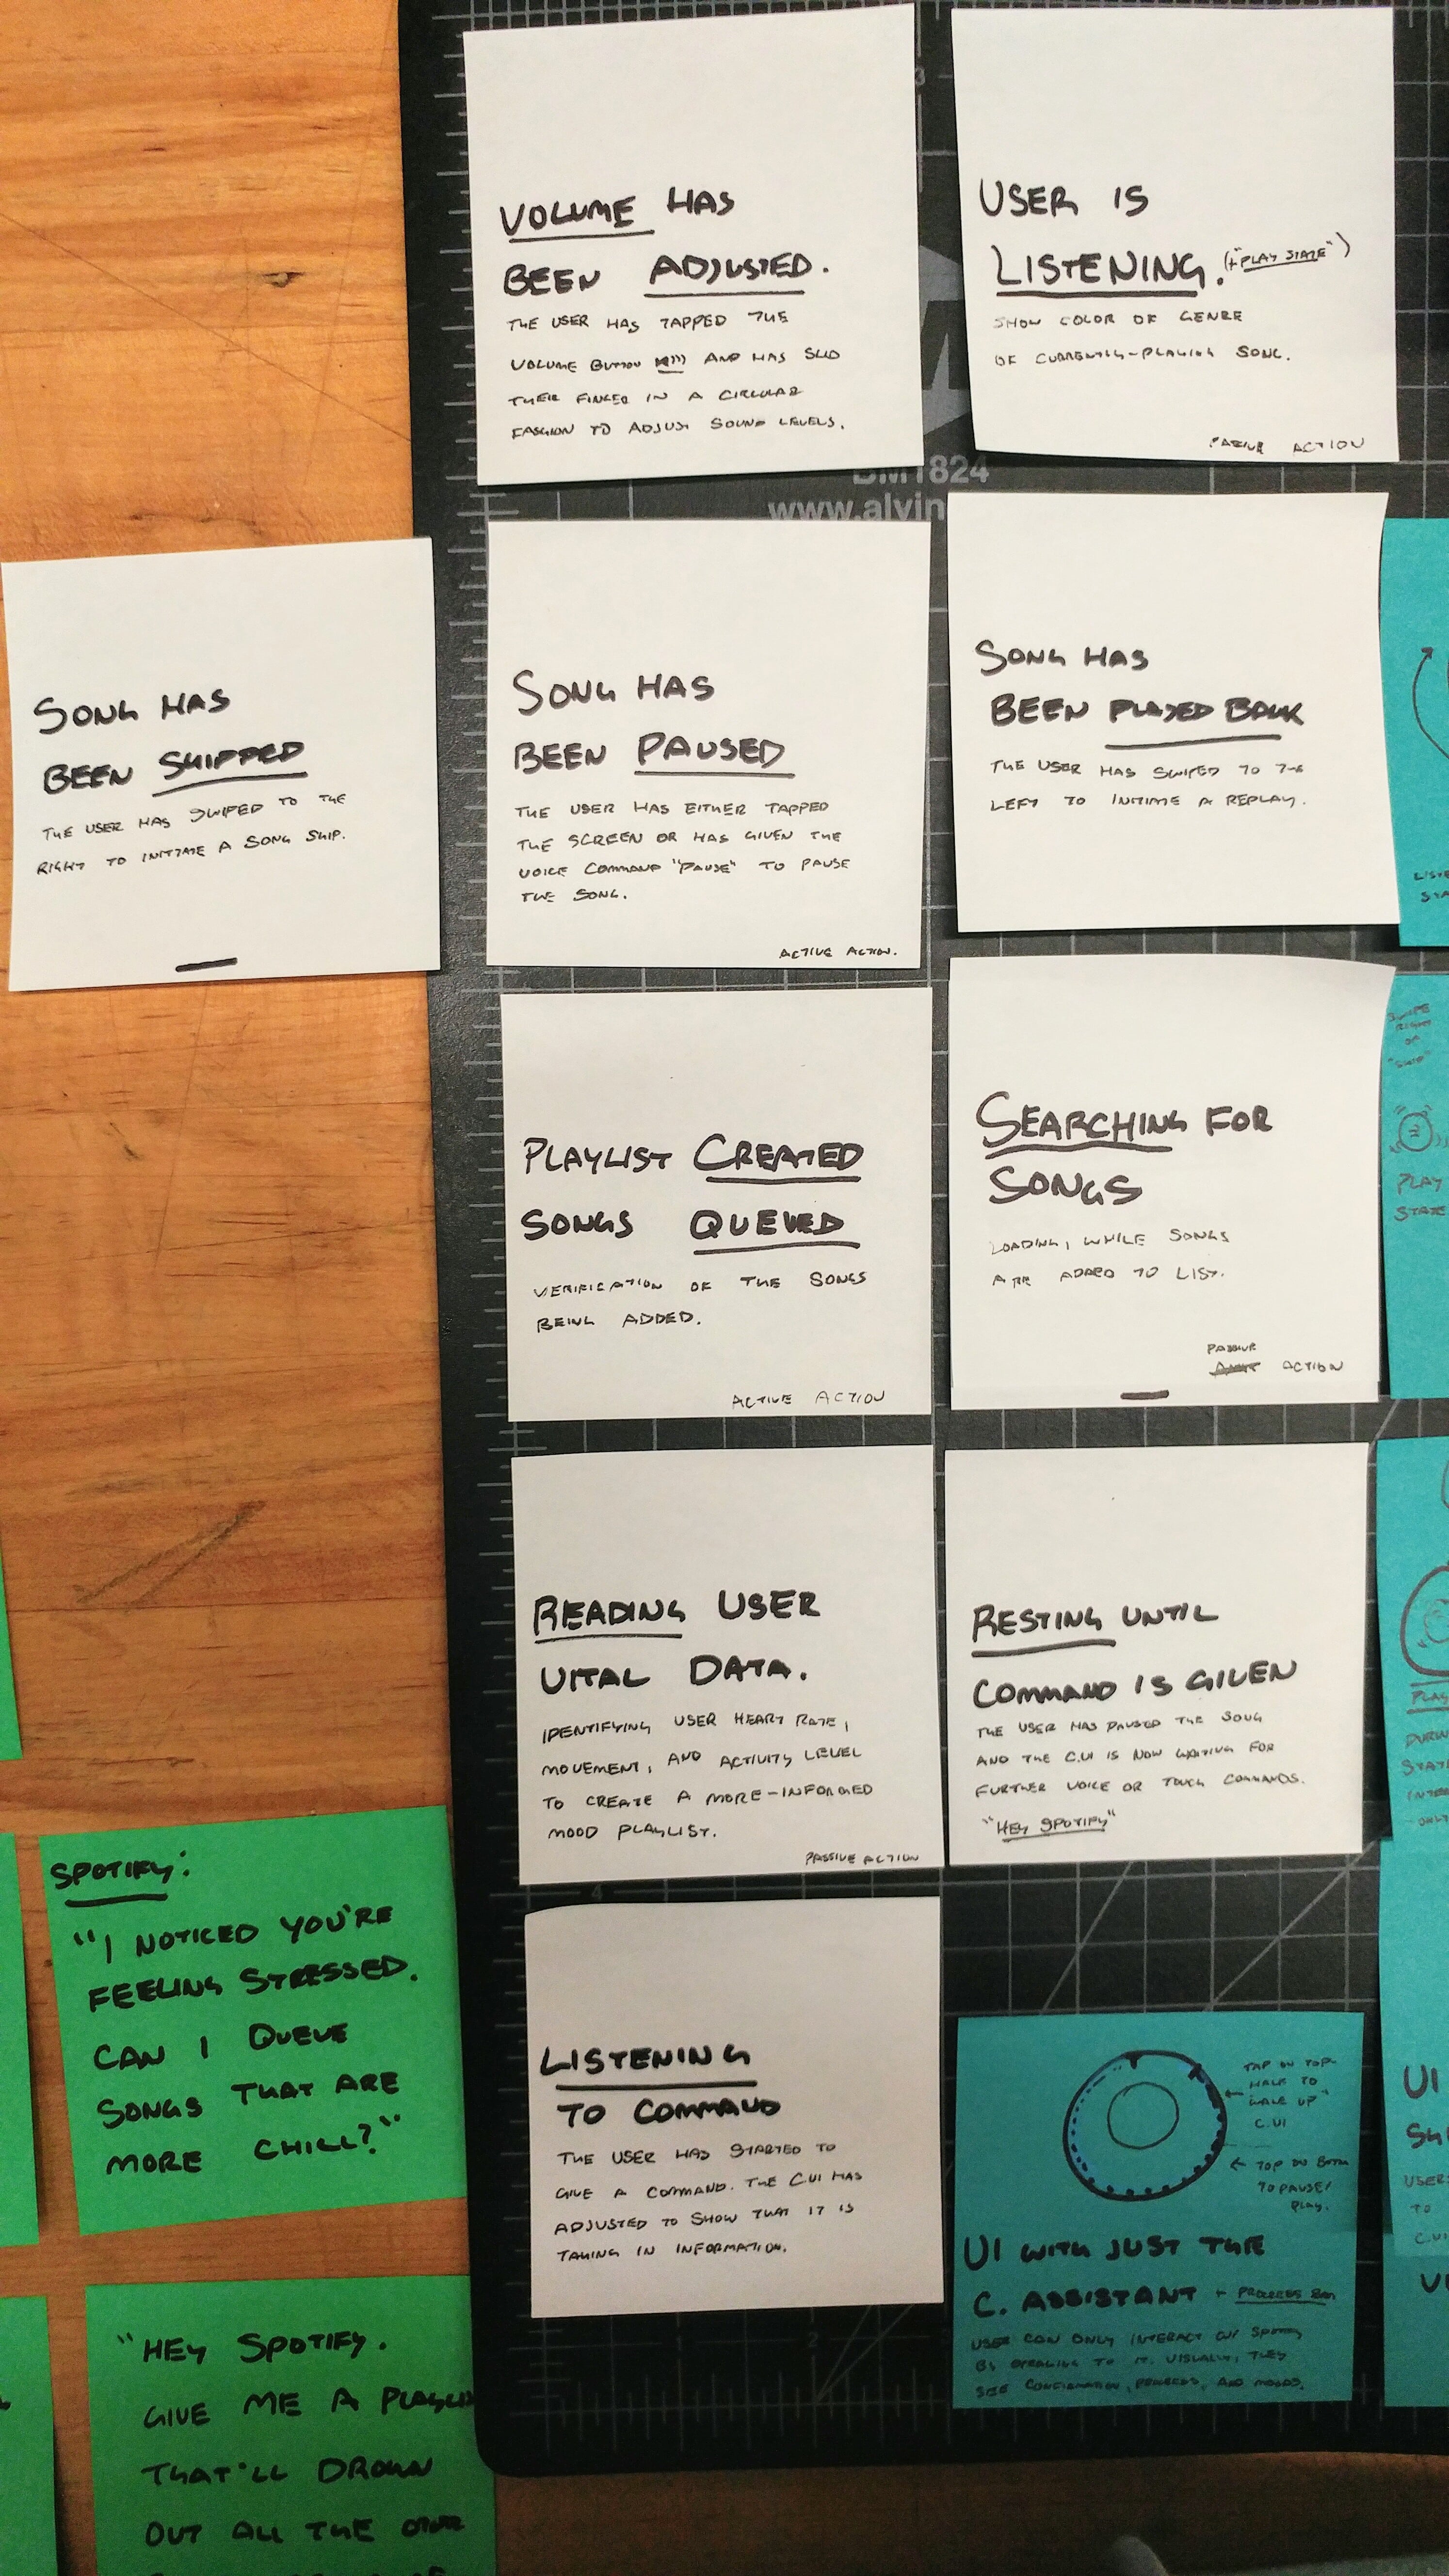 VOLUME HAS
BEEN ADJUSTED.
THE USER HAS TAPPED THE
VOLUME BUTTON AND HAS SLID
THEIR FINGER IN A CIRCULAR
FASHION TO ADJUST SOUND LEVELS.
USER IS
LISTENING. (+"PLAY STATE")
SHOW COLOR OF GENRE
OF CURRENTLY-PLAYING SONG.
PASSIVE ACTION
BM1824
www.alvin
SONG HAS
BEEN SKIPPED
THE USER HAS SWIPED TO THE
RIGHT TO INITIATE A SONG SKIP.
SONG HAS
BEEN PAUSED
THE USER HAS EITHER TAPPED
THE SCREEN OR HAS GIVEN THE
VOICE COMMAND "PAUSE" TO PAUSE
THE SONG.
ACTIVE ACTION.
SONG HAS
BEEN PLAYED BACK
THE USER HAS SWIPED TO THE
LEFT TO INITIATE A REPLAY.
PLAYLIST CREATED
SONGS QUEUED
VERIFICATION OF THE SONGS
BEING ADDED.
ACTIVE ACTION
SEARCHING FOR
SONGS
LOADING, WHILE SONGS
ARE ADDED TO LIST.
PASSIVE
ACTION
SWIPE
RIGHT
OR
"SKIP"
PLAY
STATE
READING USER
VITAL DATA.
IDENTIFYING USER HEART RATE,
MOVEMENT, AND ACTIVITY LEVEL
TO CREATE A MORE-INFORMED
MOOD PLAYLIST.
PASSIVE ACTION
RESTING UNTIL
COMMAND IS GIVEN
THE USER HAS PAUSED THE SONG
AND THE C.UI IS NOW WAITING FOR
FURTHER VOICE OR TOUCH COMMANDS.
"HEY SPOTIFY"
SPOTIFY:
"I NOTICED YOU'RE
FEELING STRESSED.
CAN I QUEUE
SONGS THAT ARE
MORE CHILL?"
LISTENING
TO COMMAND
THE USER HAS STARTED TO
GIVE A COMMAND. THE CUI HAS
ADJUSTED TO SHOW THAT IT IS
TAKING IN INFORMATION.
TAP ON TOP-
HALF TO
"WAKE UP"
C.UI
TOP ON BOTH
TO PAUSE/
PLAY.
UI WITH JUST THE
C. ASSISTANT + PROGRESS BAR
USER CAN ONLY INTERACT W/ SPOTIFY
BY SPEAKING TO IT. VISUALLY, THEY
SEE CONFIRMATION, PROGRESS, AND MOODS.
UI
"HEY SPOTIFY.
GIVE ME A PLAYLIS
THAT'LL DROWN
OUT ALL THE OTHER